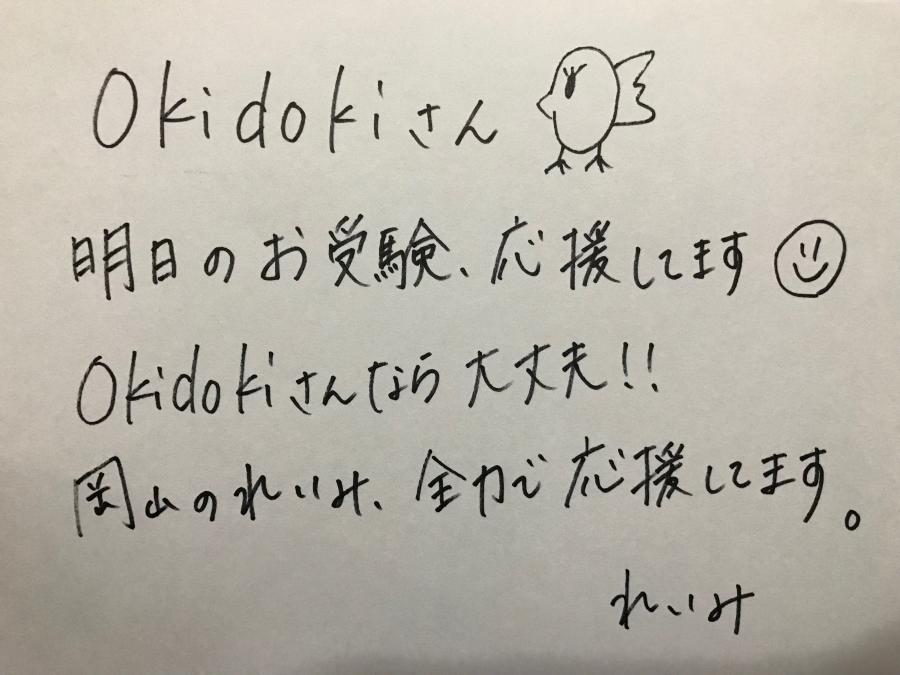 Okidokiさん
明日のお受験、応援してます
Okidokiさんなら大丈夫!!
岡山のれいみ、全力で応援してます。
れいみ